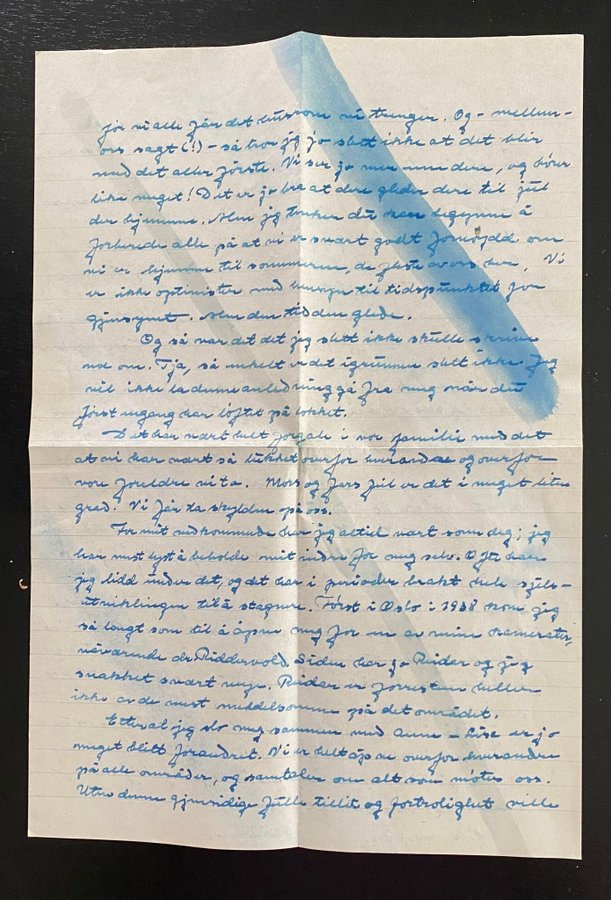 før vi alle får det huset som vi trenger. Og - mellem-
oss sagt (!) - så tror jeg jo slett ikke at det blir
med det aller første. Vi ser jo mer enn dere, og hører
like meget! Det er jo bra at dere gleder dere til jul
der hjemme. Men jeg tenker det kan begynne å
forberede alle på at vi er svært godt fornøyd om
vi er hjemme til sommeren, de fleste av oss her. Vi
er ikke optimister med hensyn til tidspunktet for
gjensynet. Men den tid den glede.
Og så var det det jeg slett ikke skulle skrive
noe om. Tja, så enkelt er det igrunnen slett ikke. Jeg
vil ikke la denne anledning gå fra meg når du
først engang har løftet på lokket.
Det har vært helt forgalt i vor familie med det
at vi har vært så lukket overfor hverandre og overfor
vore foreldre vita. Mors og fars feil er det i meget liten
grad! Vi får ta skylden på oss.
For mit vedkommende har jeg altid vært som deg; jeg
har mest lyst å beholde mit indre for meg selv. Ofte har
jeg lidd under det, og det har i perioder brakt hele sjels-
utviklingen til å stagnere. Først i Oslo i 1938 kom jeg
så langt som til å åpne meg for en av mine kamerater,
nåværende dr. Ridderwold. Siden har jo Reidar og jeg
snakket svært meget. Reidar er forresten heller
ikke av de mest meddelsomme på det området.
Etter at jeg slo meg sammen med Anne-Lise er jo
meget blitt forandret. Vi er helt åpne overfor hverandre
på alle områder, og samtaler om alt som møter oss.
Uten denne gjensidige fulle tillit og fortrolighet ville